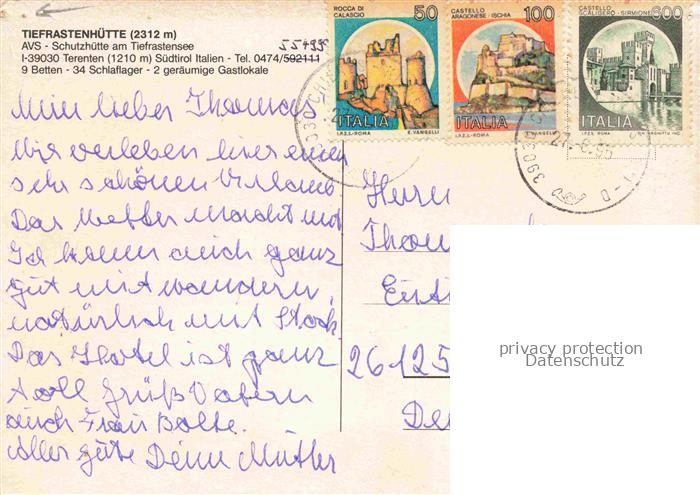 TIEFRASTENHÜTTE (2312 m)
AVS - Schutzhütte am Tiefrastensee
55499
I-39030 Terenten (1210 m) Südtirol Italien - Tel. 0474/592111
9 Betten - 34 Schlaflager - 2 geräumige Gastlokale
ROCCA DI CALASCIO
50
ITALIA
I.P.Z.S.-ROMA E. VANGELLI
CASTELLO ARAGONESE - ISCHIA
100
ITALIA
I.P.Z.S.-ROMA
CASTELLO SCALIGERO - SIRMIONE
600
ITALIA
I.P.Z.S. ROMA
Mein lieber Thomas!
Wir verleben hier einen
sehr schönen Urlaub
Das Wetter macht mit
Ich kann auch ganz
gut mit wandern,
natürlich mit Stock
Das Hotel ist ganz
toll Grüß Vatern
auch Frau Bolte.
Alles gute Deine Mutter
Herrn
Thom
26125
De
privacy protection
Datenschutz